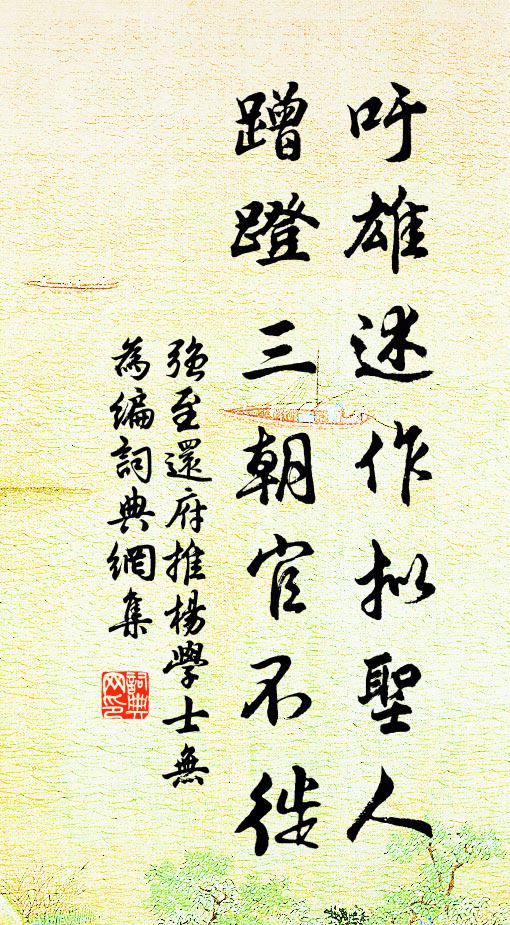 吁雄述作拟聖人
蹭蹬三朝官不徙
强至還府推楊學士無
為編詞典網集
詞典網印